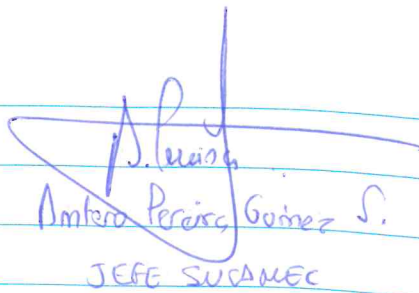 A. Pereira
Antero Pereira Gomez S.
JEFE SUCAMEC